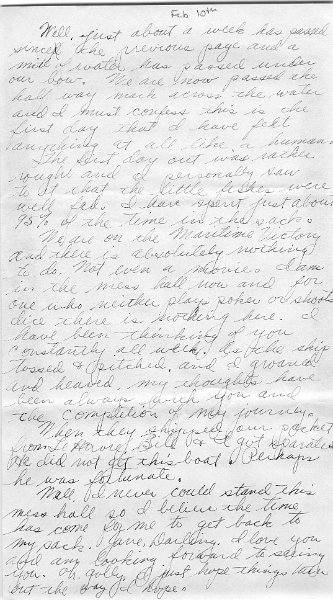 Feb 10th
Well, just about a week has passed
since the previous page and a
of water has passed under
our bow. We are now passed the
half way mark across the water
and I must confess this is the
first day that I have felt
anything at all like a human.
The first day out was rather
rough and I personally saw
to it that the little fishes were
well fed. I have spent just about
95% of the time in the sack.
We are on the Maritime Victory
and there is absolutely nothing
to do. Not even a movie. I am
in the mess hall now and for
one who neither plays poker or shoots
dice there is nothing here. I
have been thinking of you
constantly all week. As the ship
tossed & pitched, and I groaned
and heaved, my thoughts have
been always with you and
the completion of my journey.
When they shipped our packet
from Le Havre, Bill & I got separated
He did not get this boat. Perhaps
he was fortunate.
Well I never could stand this
mess hall so I believe the time
has come for me to get back to
my sack. Jane, Darling, I love you
and am looking forward to seeing
you. Oh golly I just hope things turn
out the way I hope.